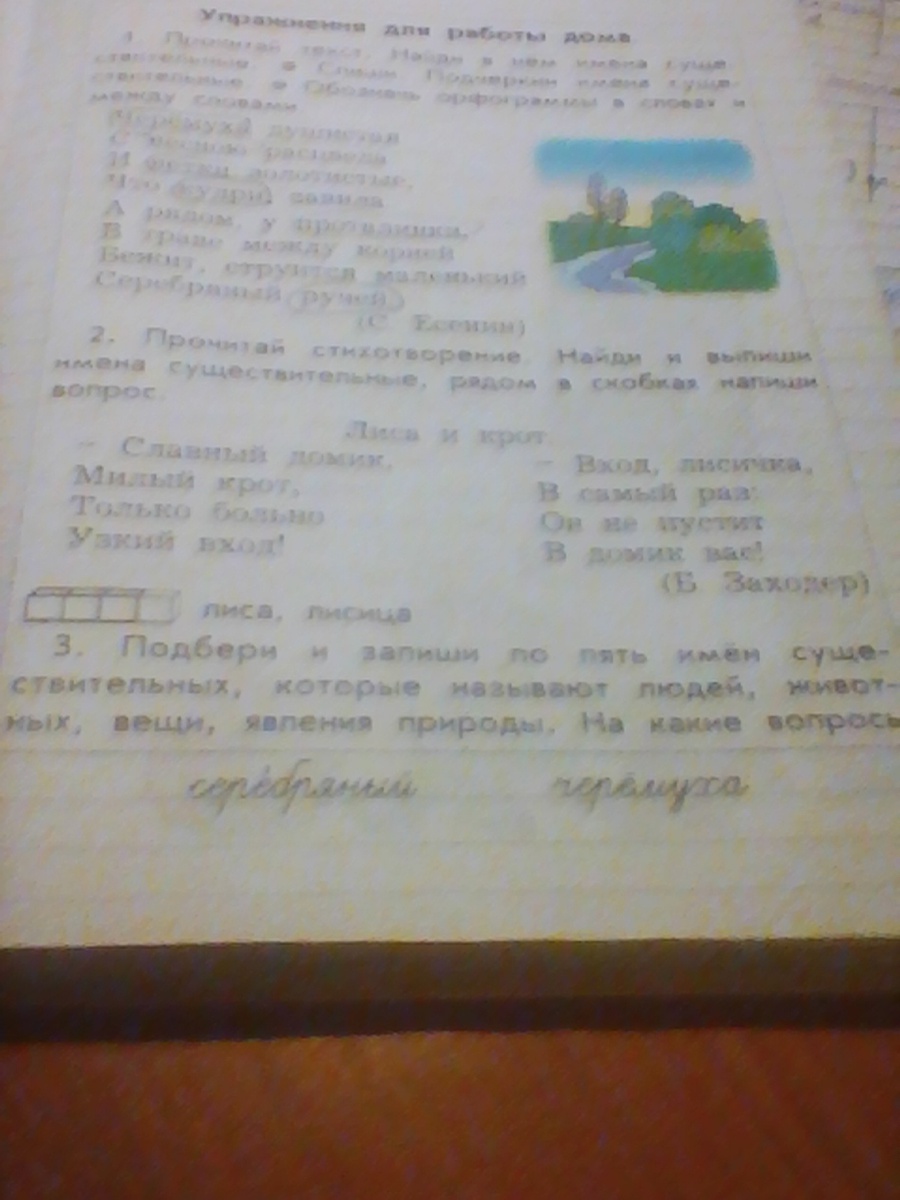 Упражнения для работы дома
1. Прочитай текст. Найди в нём имена суще-
ствительные. Спиши. Подчеркни имена суще-
ствительные. Обозначь орфограммы в словах и
между словами.
Черёмуха душистая
С весною расцвела
И ветки золотистые,
Что кудри, завила.
А рядом, у проталинки,
В траве между корней
Бежит, струится маленький
Серебряный ручей.
(С. Есенин)
2. Прочитай стихотворение. Найди и выпиши
имена существительные, рядом в скобках напиши
вопрос.
Лиса и крот
– Славный домик,
Милый крот,
Только больно
Узкий вход!
– Вход, лисичка,
В самый раз:
Он не пустит
В домик вас!
(Б. Заходер)
лиса, лисица
3. Подбери и запиши по пять имён суще-
ствительных, которые называют людей, живот-
ных, вещи, явления природы. На какие вопросы
серебряный черёмуха